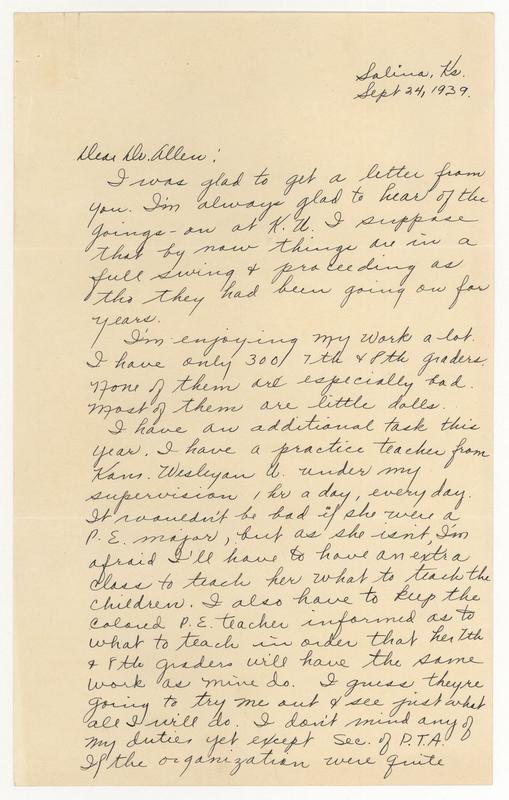 Salina, Ks.
Sept 24, 1939.
Dear Dr. Allen:
I was glad to get a letter from
you. I'm always glad to hear of the
goings-on at K.U. I suppose
that by now things are in a
full swing & proceeding as
tho they had been going on for
years.
I'm enjoying my work a lot.
I have only 300 7th & 8th graders.
None of them are especially bad.
Most of them are little dolls.
I have an additional task this
year. I have a practice teacher from
Kans. Wesleyan U. under my
supervision 1 hr a day, everyday.
It wouldn't be bad if she were a
P.E. major, but as she isn't, I'm
afraid I'll have to have an extra
class to teach her what to teach the
children. I also have to keep the
colored P.E. teacher informed as to
what to teach in order that her 7th
& 8th graders will have the same
work as mine do. I guess they're
going to try me out & see just what
all I will do. I don't mind any of
my duties yet except Sec. of P.T.A.
If the organization were quite